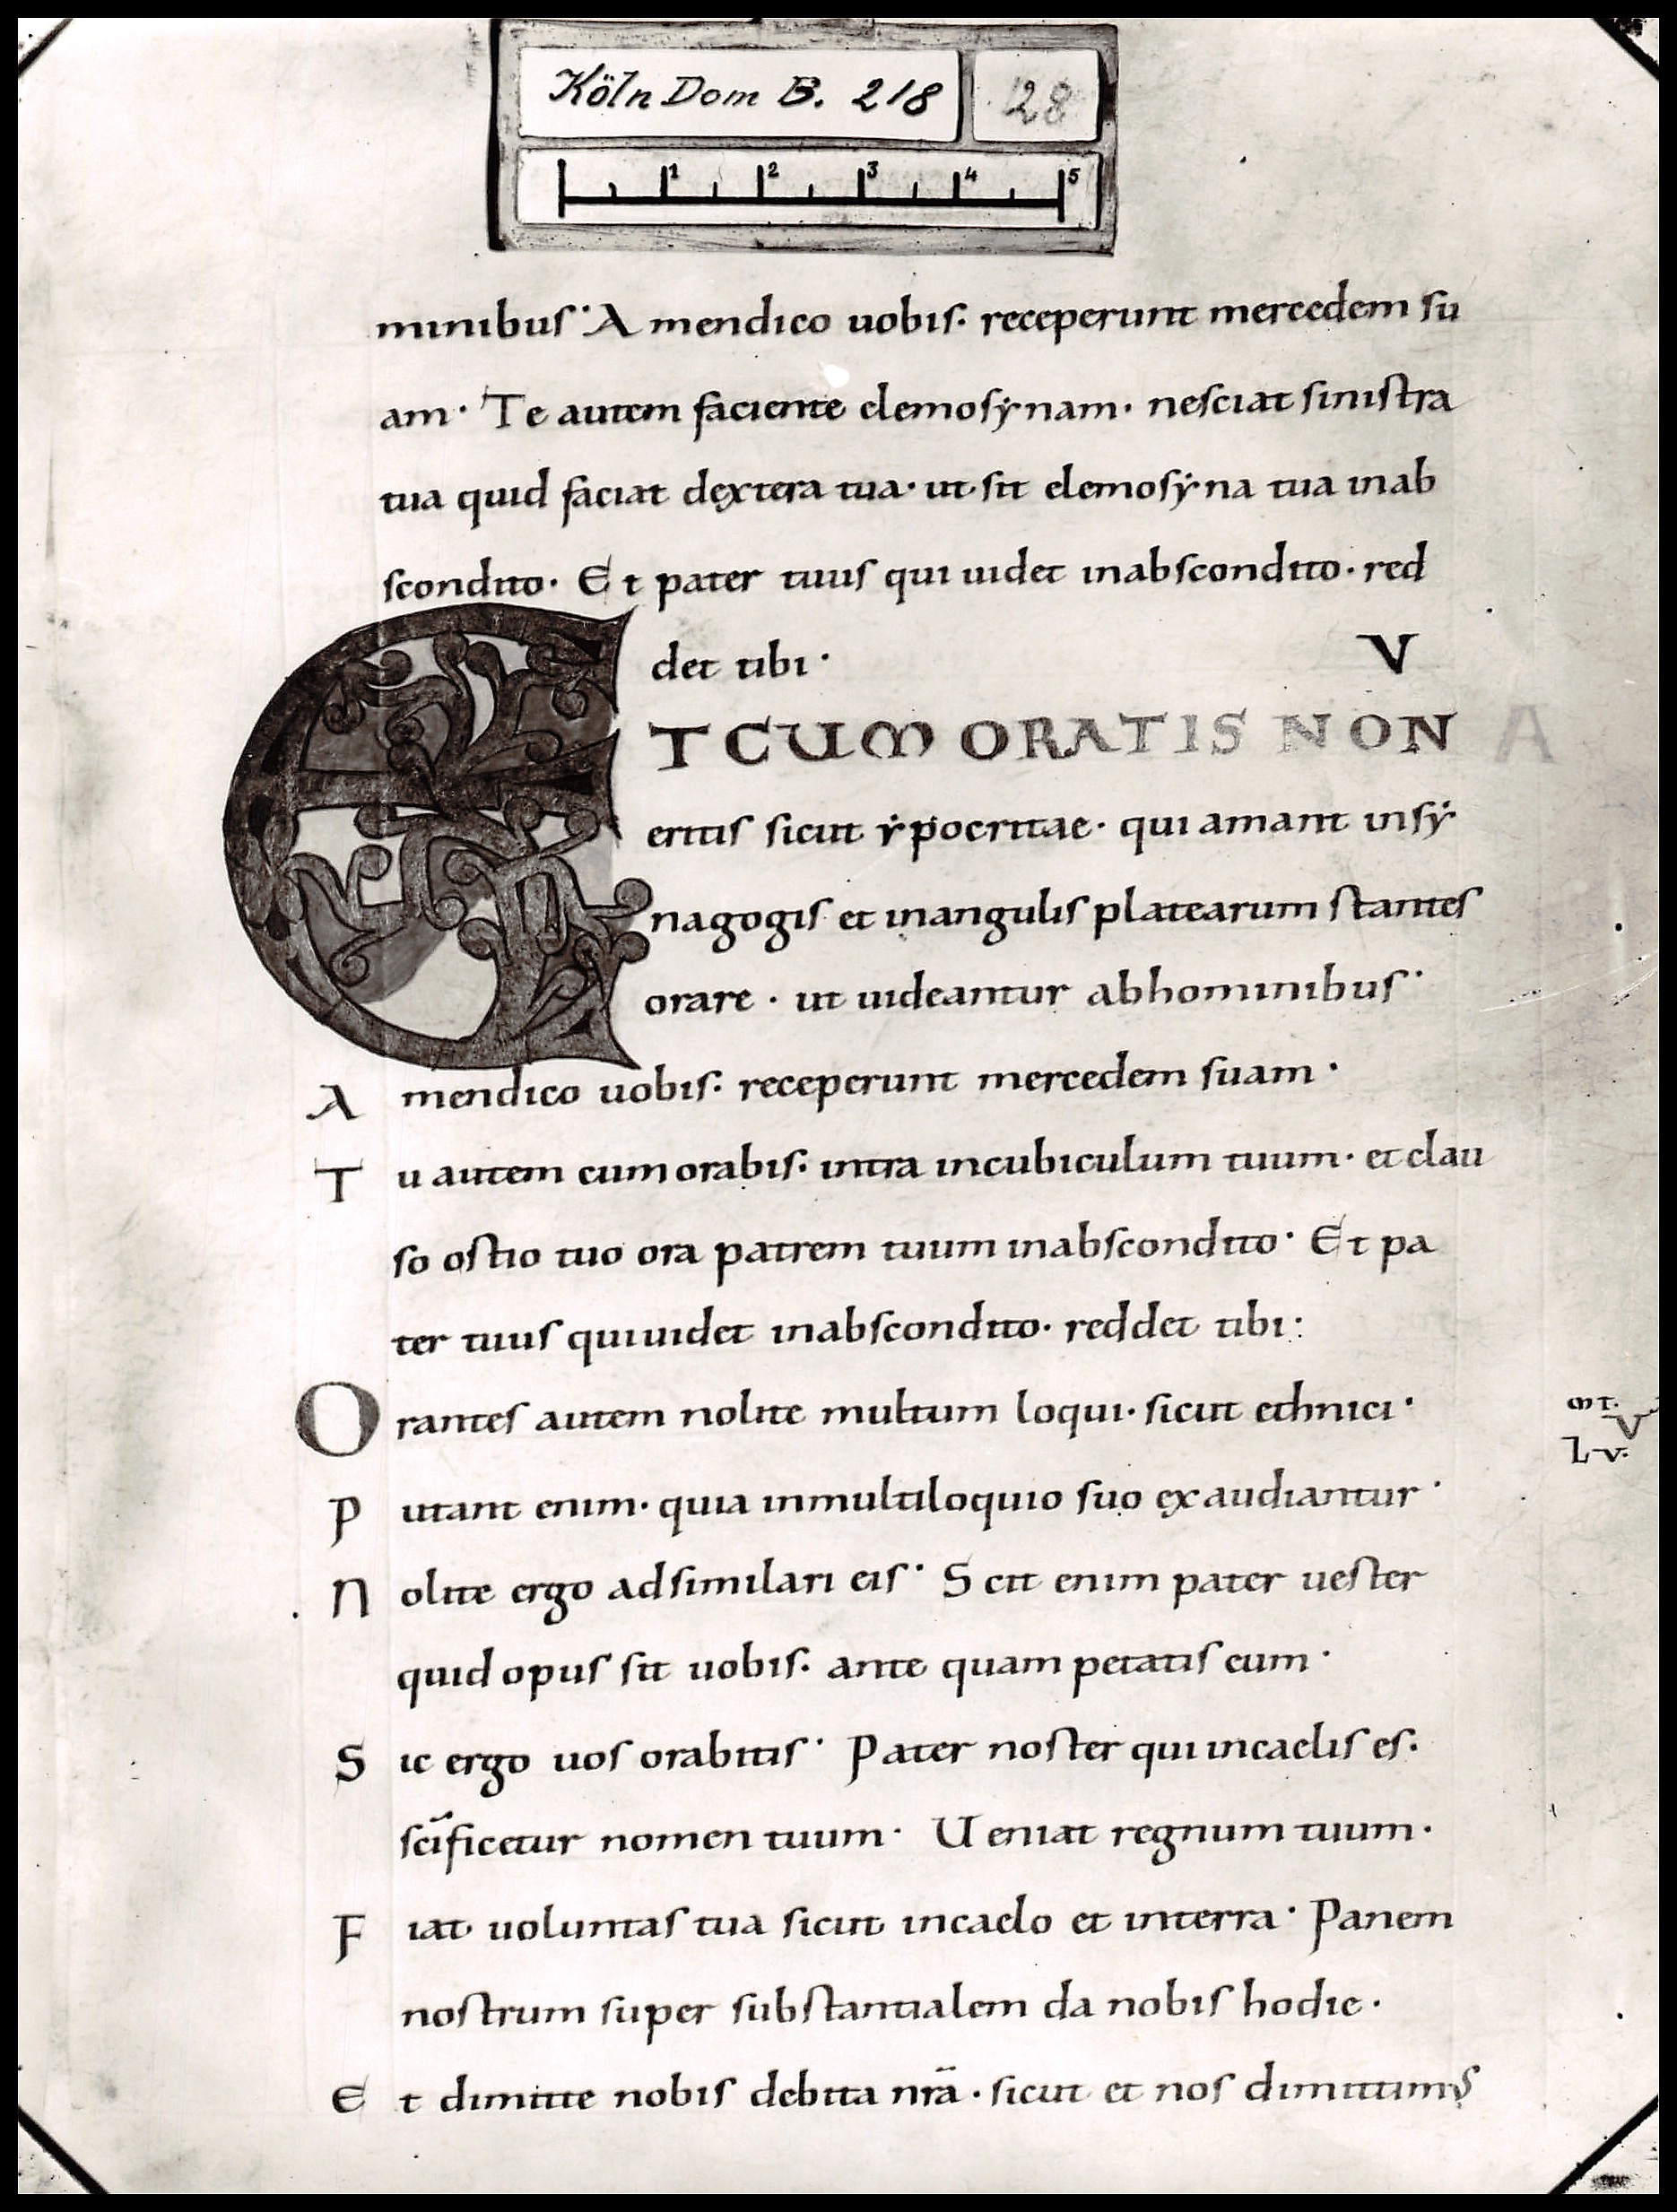 Köln Dom B. 218 28
1 2 3 4 5
minibus· Amen dico uobis· receperunt mercedem su
am· Te autem faciente elemosẏnam· nesciat sinistra
tua quid faciat dextera tua· ut sit elemosẏna tua inab
scondito· Et pater tuus qui uidet inabscondito· red
det tibi· V
ET CUM ORATIS NON
eritis sicut ẏpocritae· qui amant insẏ
nagogis et inangulis platearum stantes
orare· ut uideantur abhominibus·
Amen dico uobis· receperunt mercedem suam·
Tu autem cum orabis· intra incubiculum tuum· et clau
so ostio tuo ora patrem tuum inabscondito· Et pa
ter tuus qui uidet inabscondito· reddet tibi:
Orantes autem nolite multum loqui· sicut ethnici·
mt.
V
L v.
Putant enim· quia inmultiloquio suo exaudiantur·
Nolite ergo adsimilari eis· Scit enim pater uester
quid opus sit uobis· ante quam petatis eum·
Sic ergo uos orabitis· Pater noster qui incaelis es·
scīficetur nomen tuum· Ueniat regnum tuum·
Fiat uoluntas tua sicut incaelo et interra· Panem
nostrum super substantialem da nobis hodie·
Et dimitte nobis debita nrā· sicut et nos dimittimus